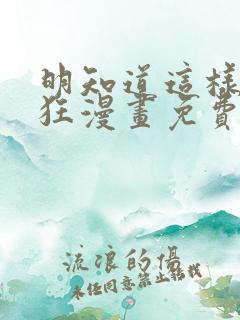 明知道這樣
狂漫畫免費
流浪的傷
未任同意禁止轉載